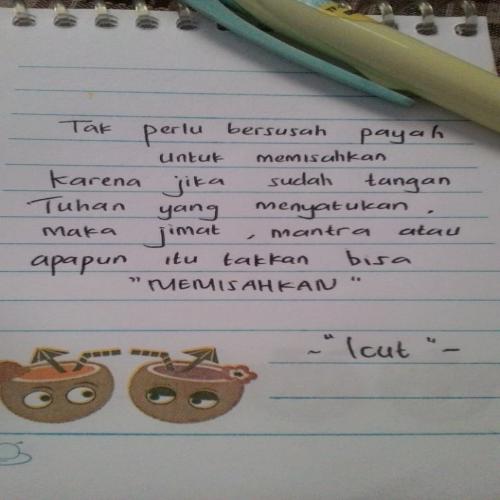 Tak perlu bersusah payah
untuk memisahkan
karena jika sudah tangan
Tuhan yang menyatukan,
maka jimat, mantra atau
apapun itu takkan bisa
"MEMISAHKAN"
~"Icut"~